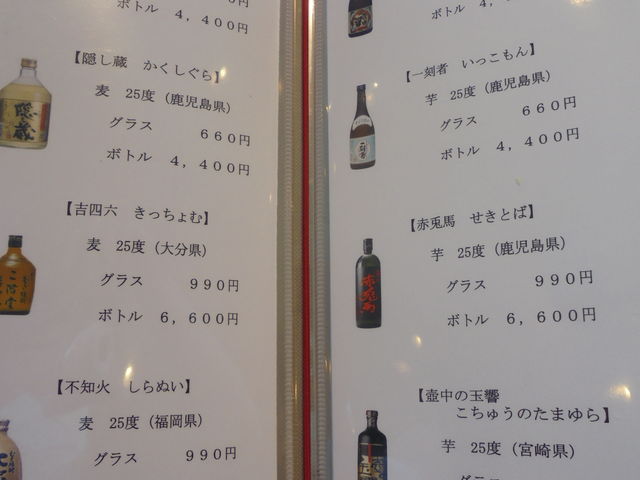 ボトル 4,400円
【隠し蔵 かくしぐら】
麦 25度（鹿児島県）
グラス 660円
ボトル 4,400円
【吉四六 きっちょむ】
麦 25度（大分県）
グラス 990円
ボトル 6,600円
【不知火 しらぬい】
麦 25度（福岡県）
グラス 990円
ボトル
【一刻者 いっこもん】
芋 25度（鹿児島県）
グラス 660円
ボトル 4,400円
【赤兎馬 せきとば】
芋 25度（鹿児島県）
グラス 990円
ボトル 6,600円
【壺中の玉響
こちゅうのたまゆら】
芋 25度（宮崎県）
隠し蔵
二階堂
赤兎馬